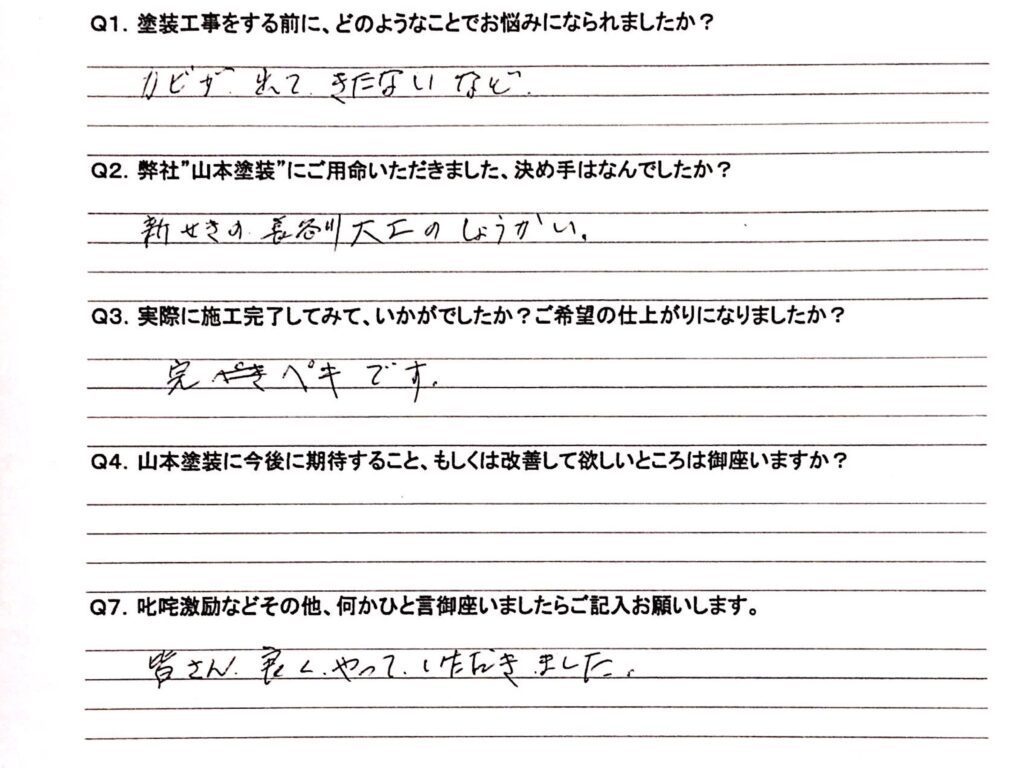 Q1. 塗装工事をする前に、どのようなことでお悩みになられましたか？
カビが 出て きたない など.
Q2. 弊社”山本塗装”にご用命いただきました、決め手はなんでしたか？
新せきの 長谷川大工のしょうかい。
Q3. 実際に施工完了してみて、いかがでしたか？ご希望の仕上がりになりましたか？
完 ペキです。
Q4. 山本塗装に今後に期待すること、もしくは改善して欲しいところは御座いますか？
Q7. 叱咤激励などその他、何かひと言御座いましたらご記入お願いします。
皆さん 良く やって いただきました。